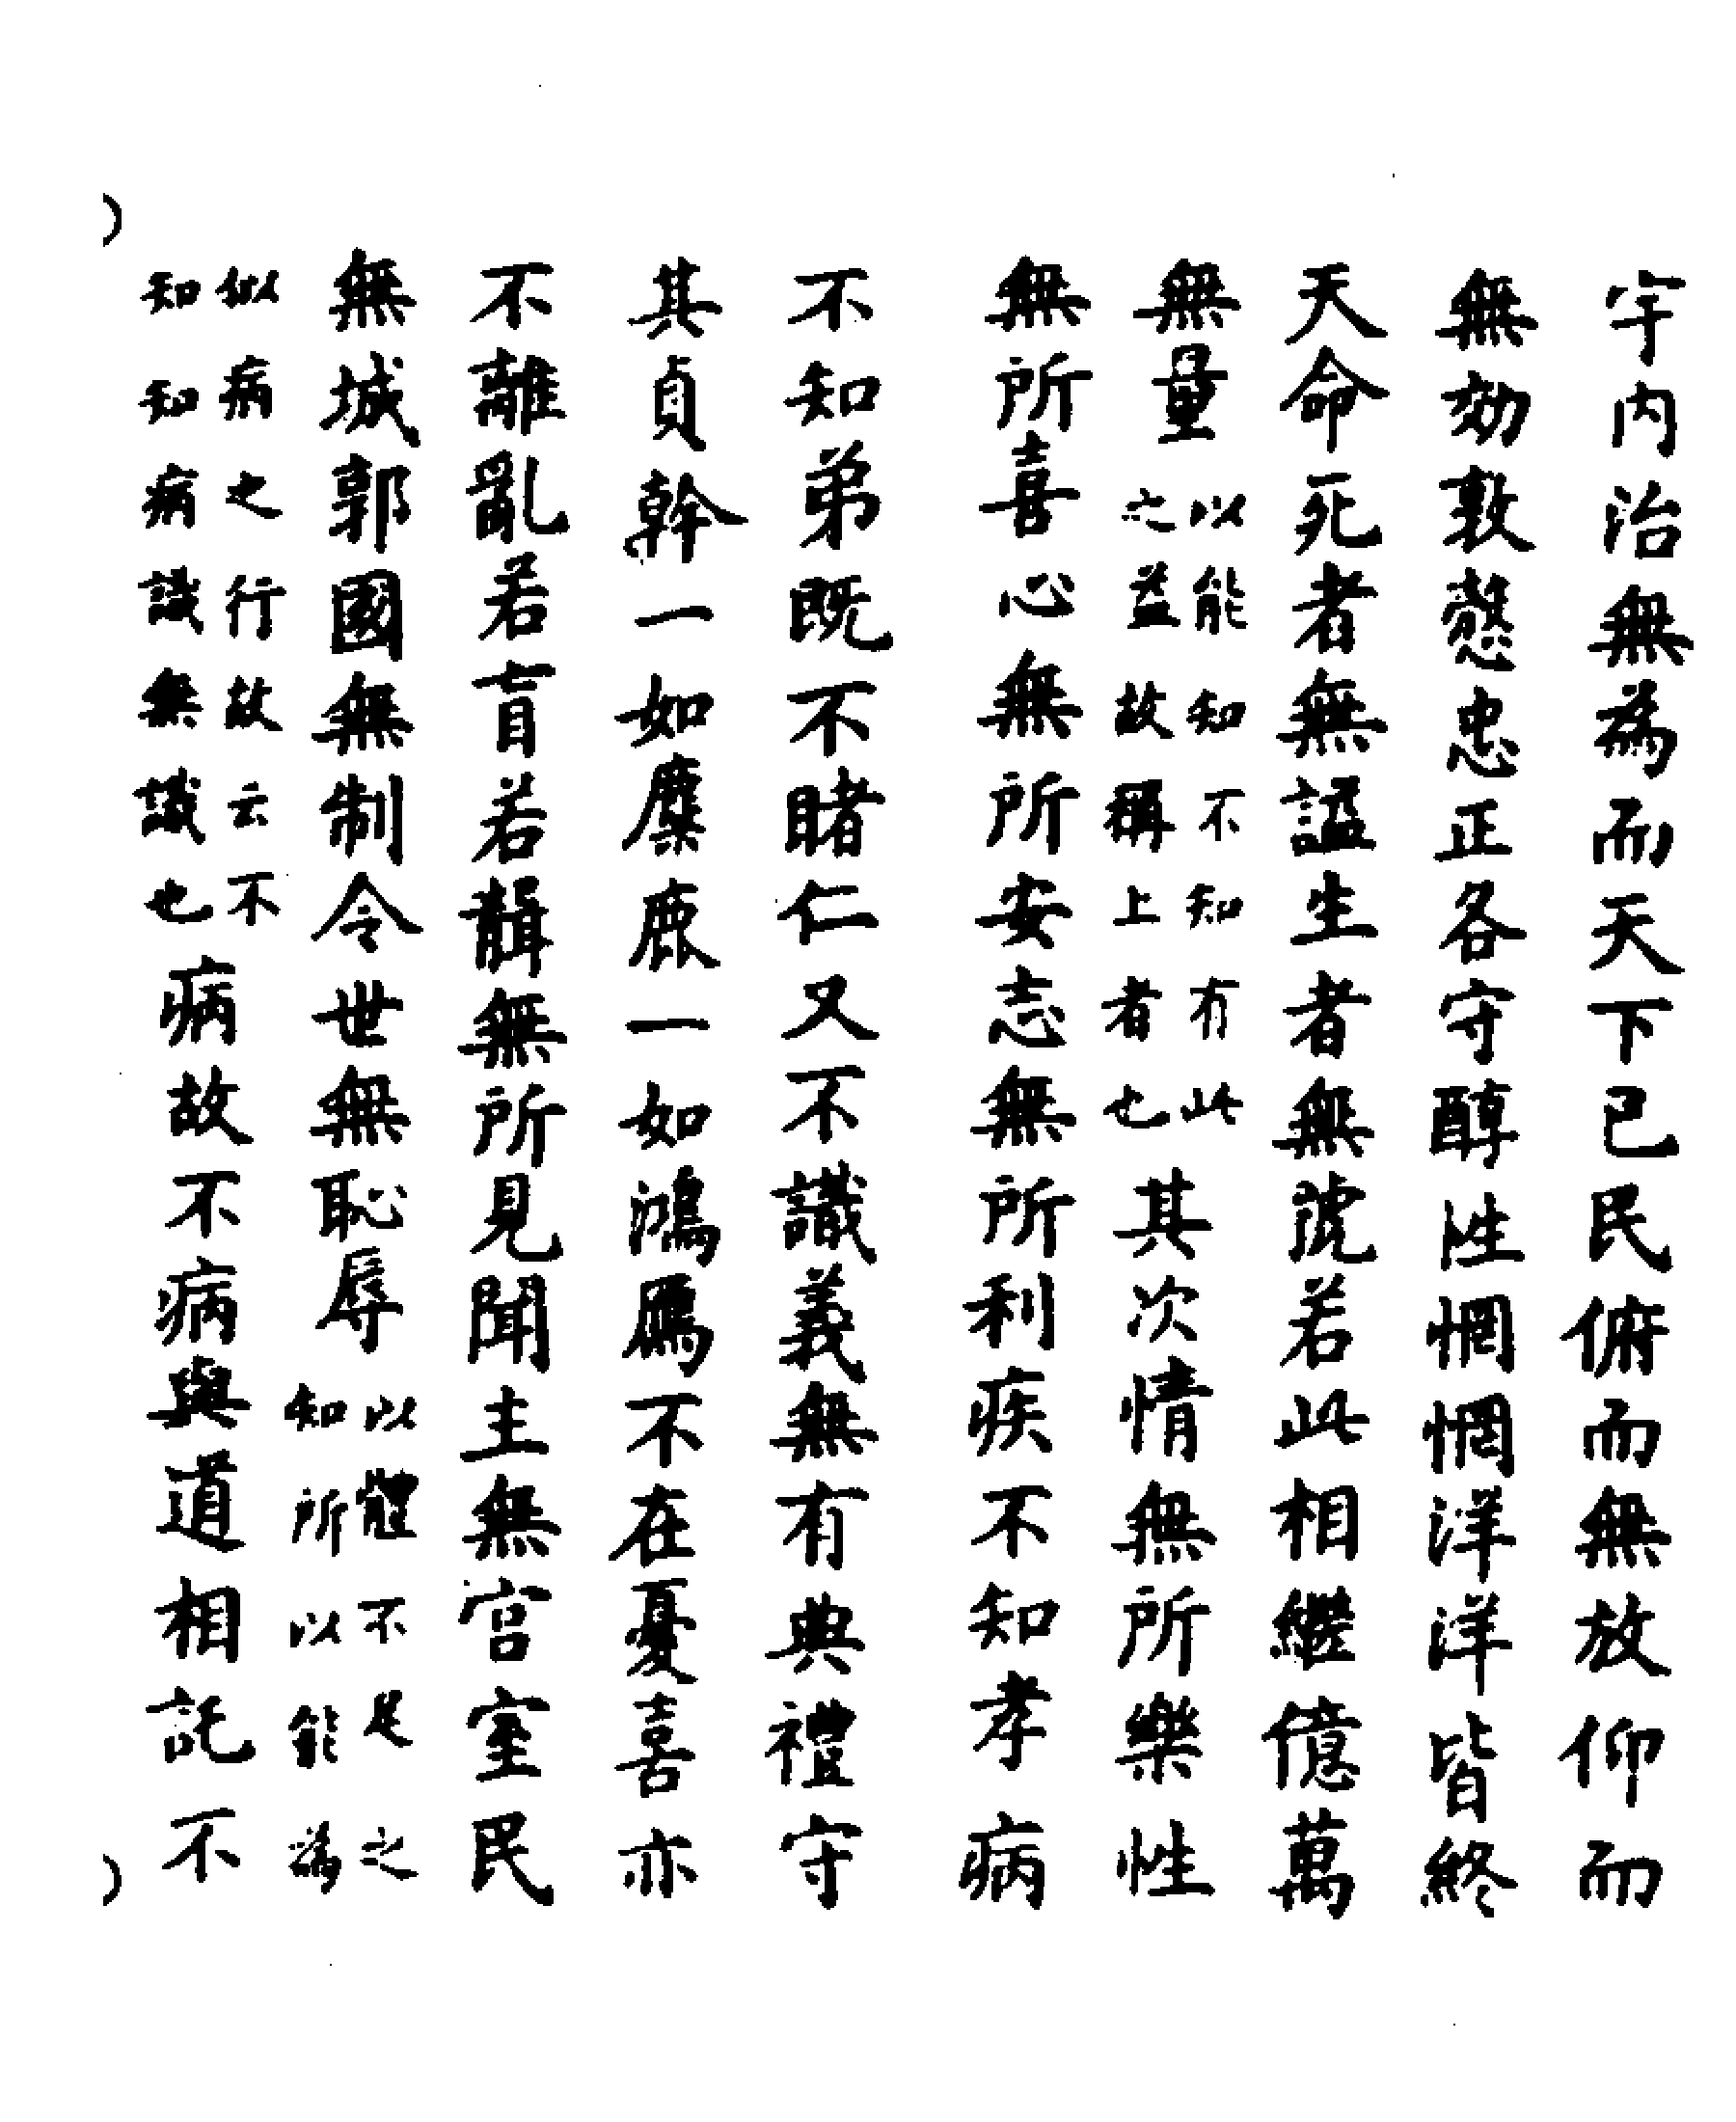 宇內治無為而天下已民俯而無放仰而
無効敦愨忠正各守醇性惘惘洋洋皆終
天命死者無謚生者無號若此相繼億萬
無量以能知不知有此之益故稱上者也其次情無所樂性
無所喜心無所安志無所利疾不知孝病
不知弟既不睹仁又不識義無有典禮守
其貞幹一如麋鹿一如鴻鴈不在憂喜亦
不離亂若盲若聾無所見聞主無宮室民
無城郭國無制令世無恥辱以體不足之知所以能譌
似病之行故云不知知病識無識也病故不病與道相託不